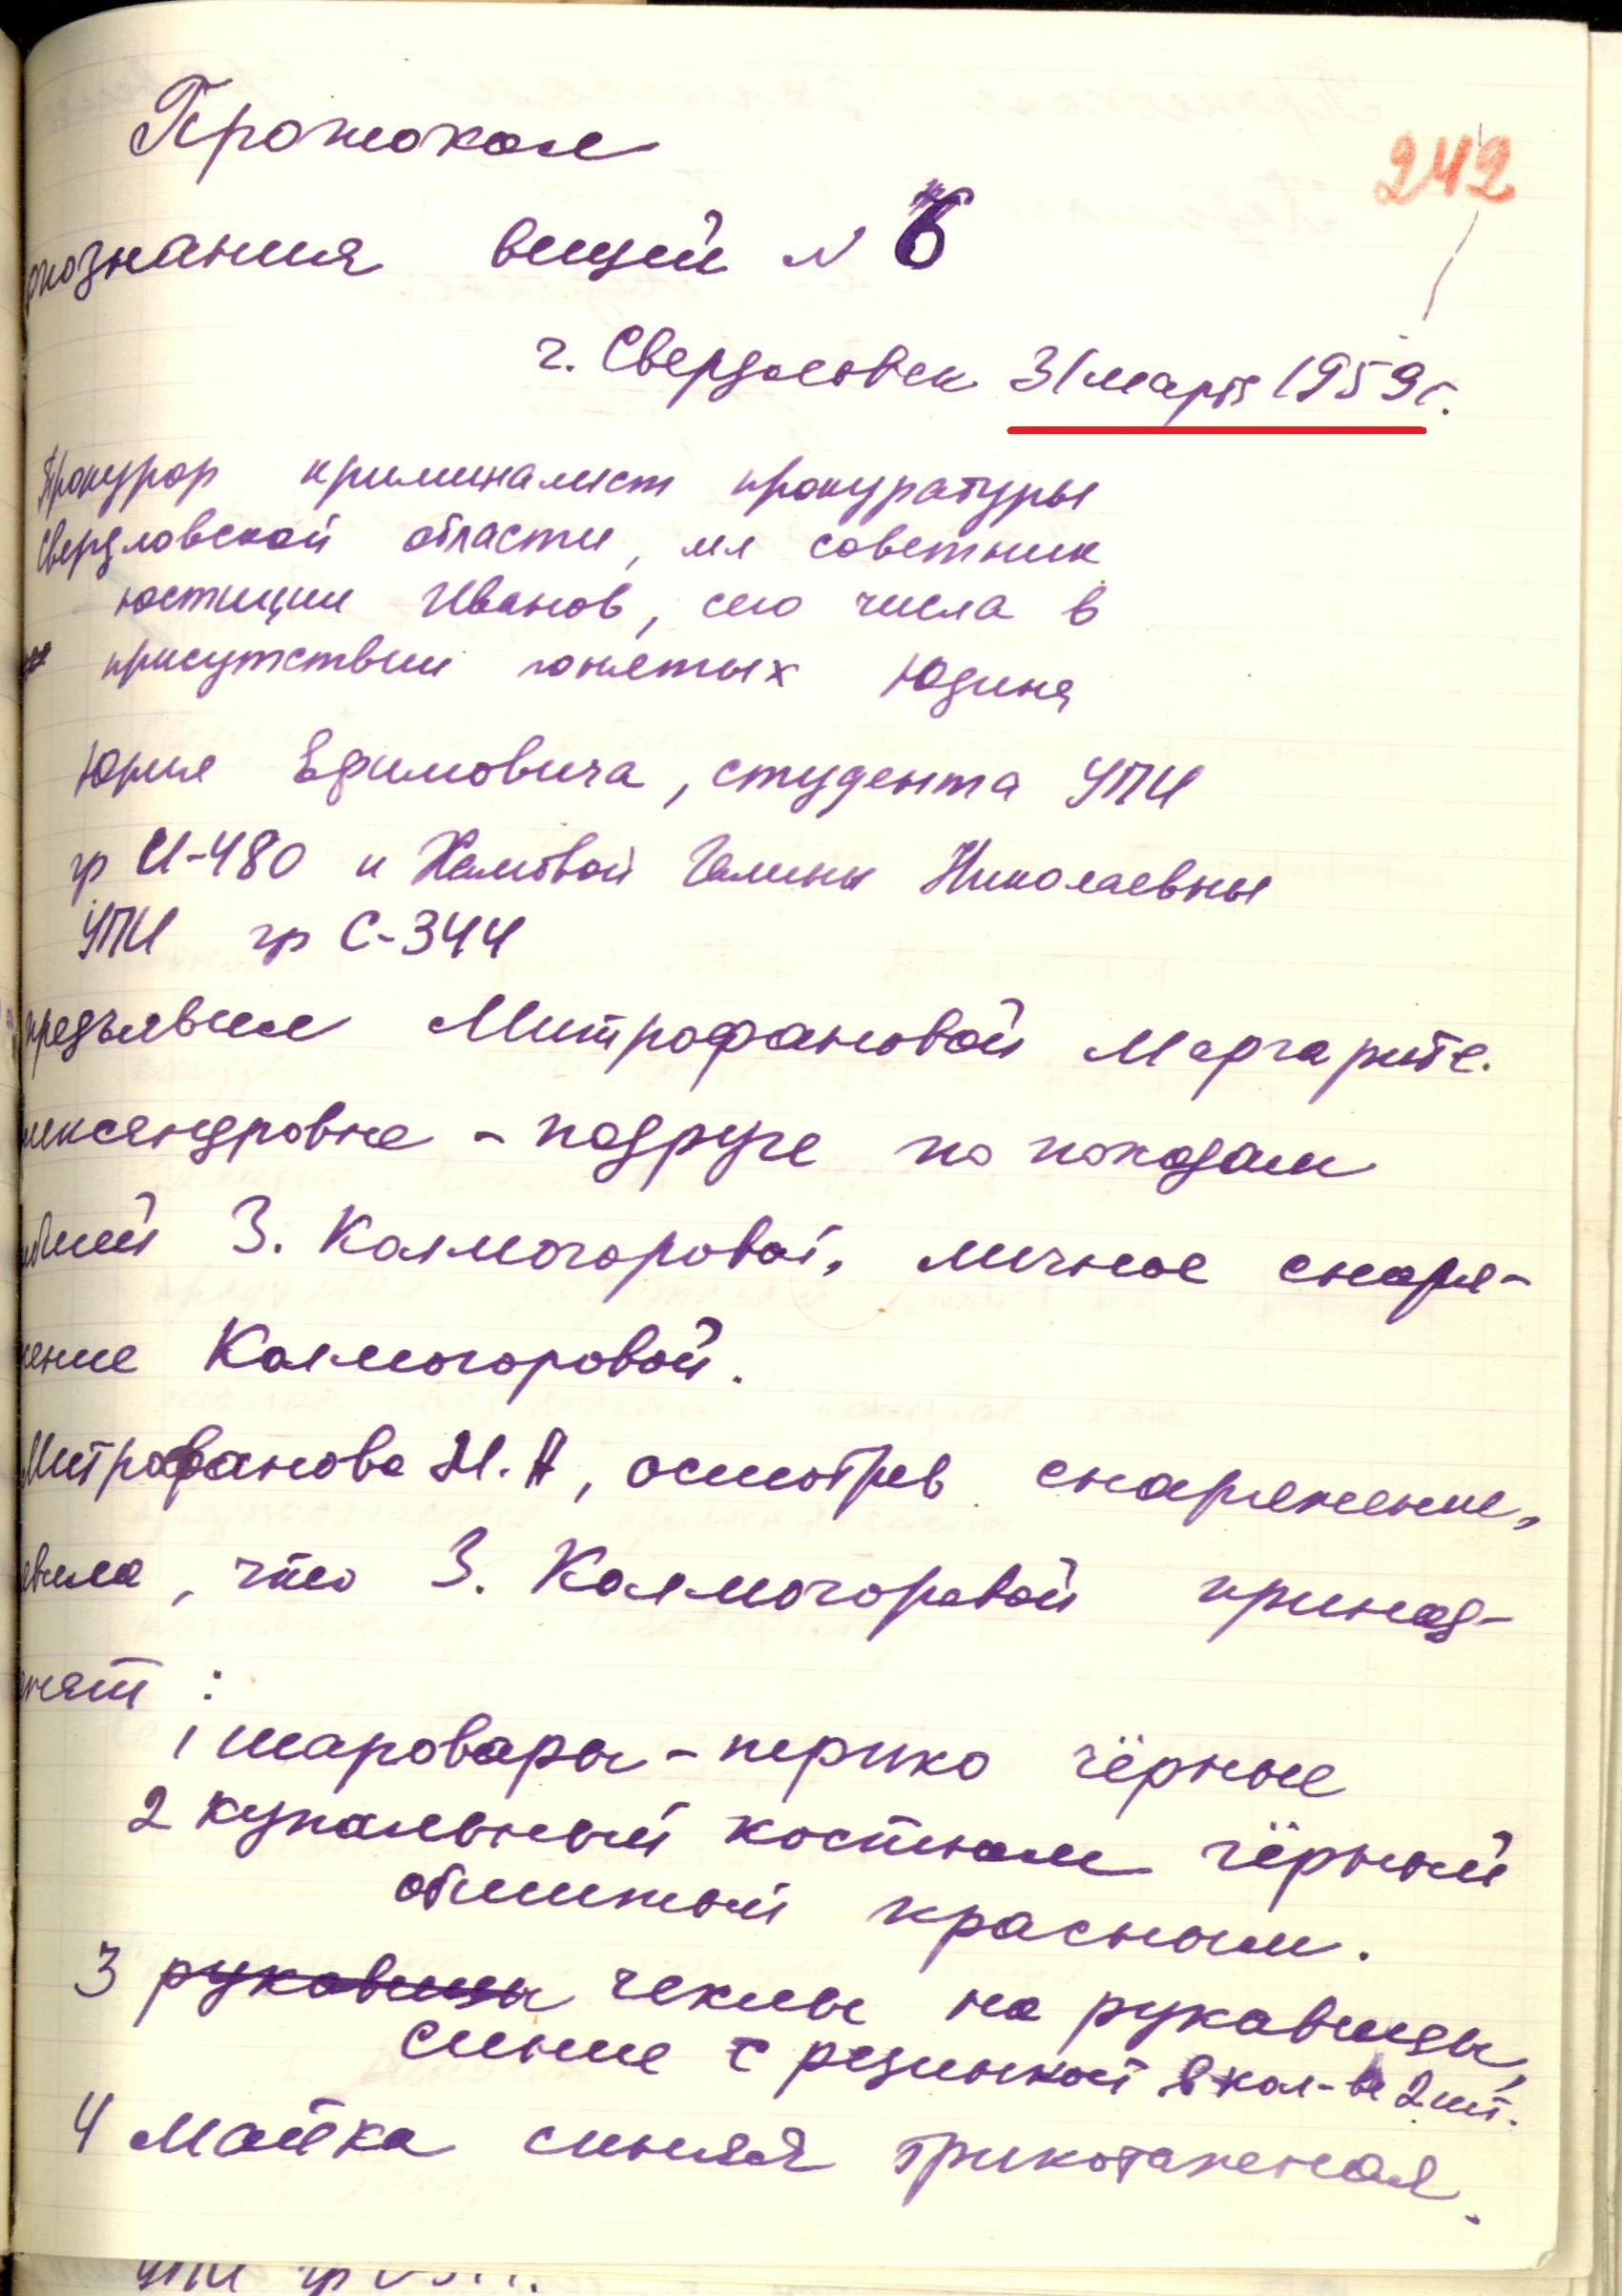 Протокол
242
опознания вещей N 6
г. Свердловск 31 марта 1959 г.
Прокурор криминалист прокуратуры
Свердловской области, мл советник
юстиции Иванов, сего числа в
присутствии понятых Юдина
Юрия Ефимовича, студента УПИ
гр И-480 и Галины Николаевны
УПИ гр С-344
предъявил Митрофановой Маргарите.
лександровне - подруге по походам
ибшей З. Колмогоровой, личное снаря-
жение Колмогоровой.
Митрофанова М.А, осмотрев снаряжение,
явила, что З. Колмогоровой принад-
лежат :
1 шаровары - перико чёрные
2 купальный костюм чёрный
обшитый красным.
3 рукавицы чехлы на рукавицы,
синие с резинкой в кол-ве 2 шт.
4 Майка синяя трикотажная.
УПИ гр